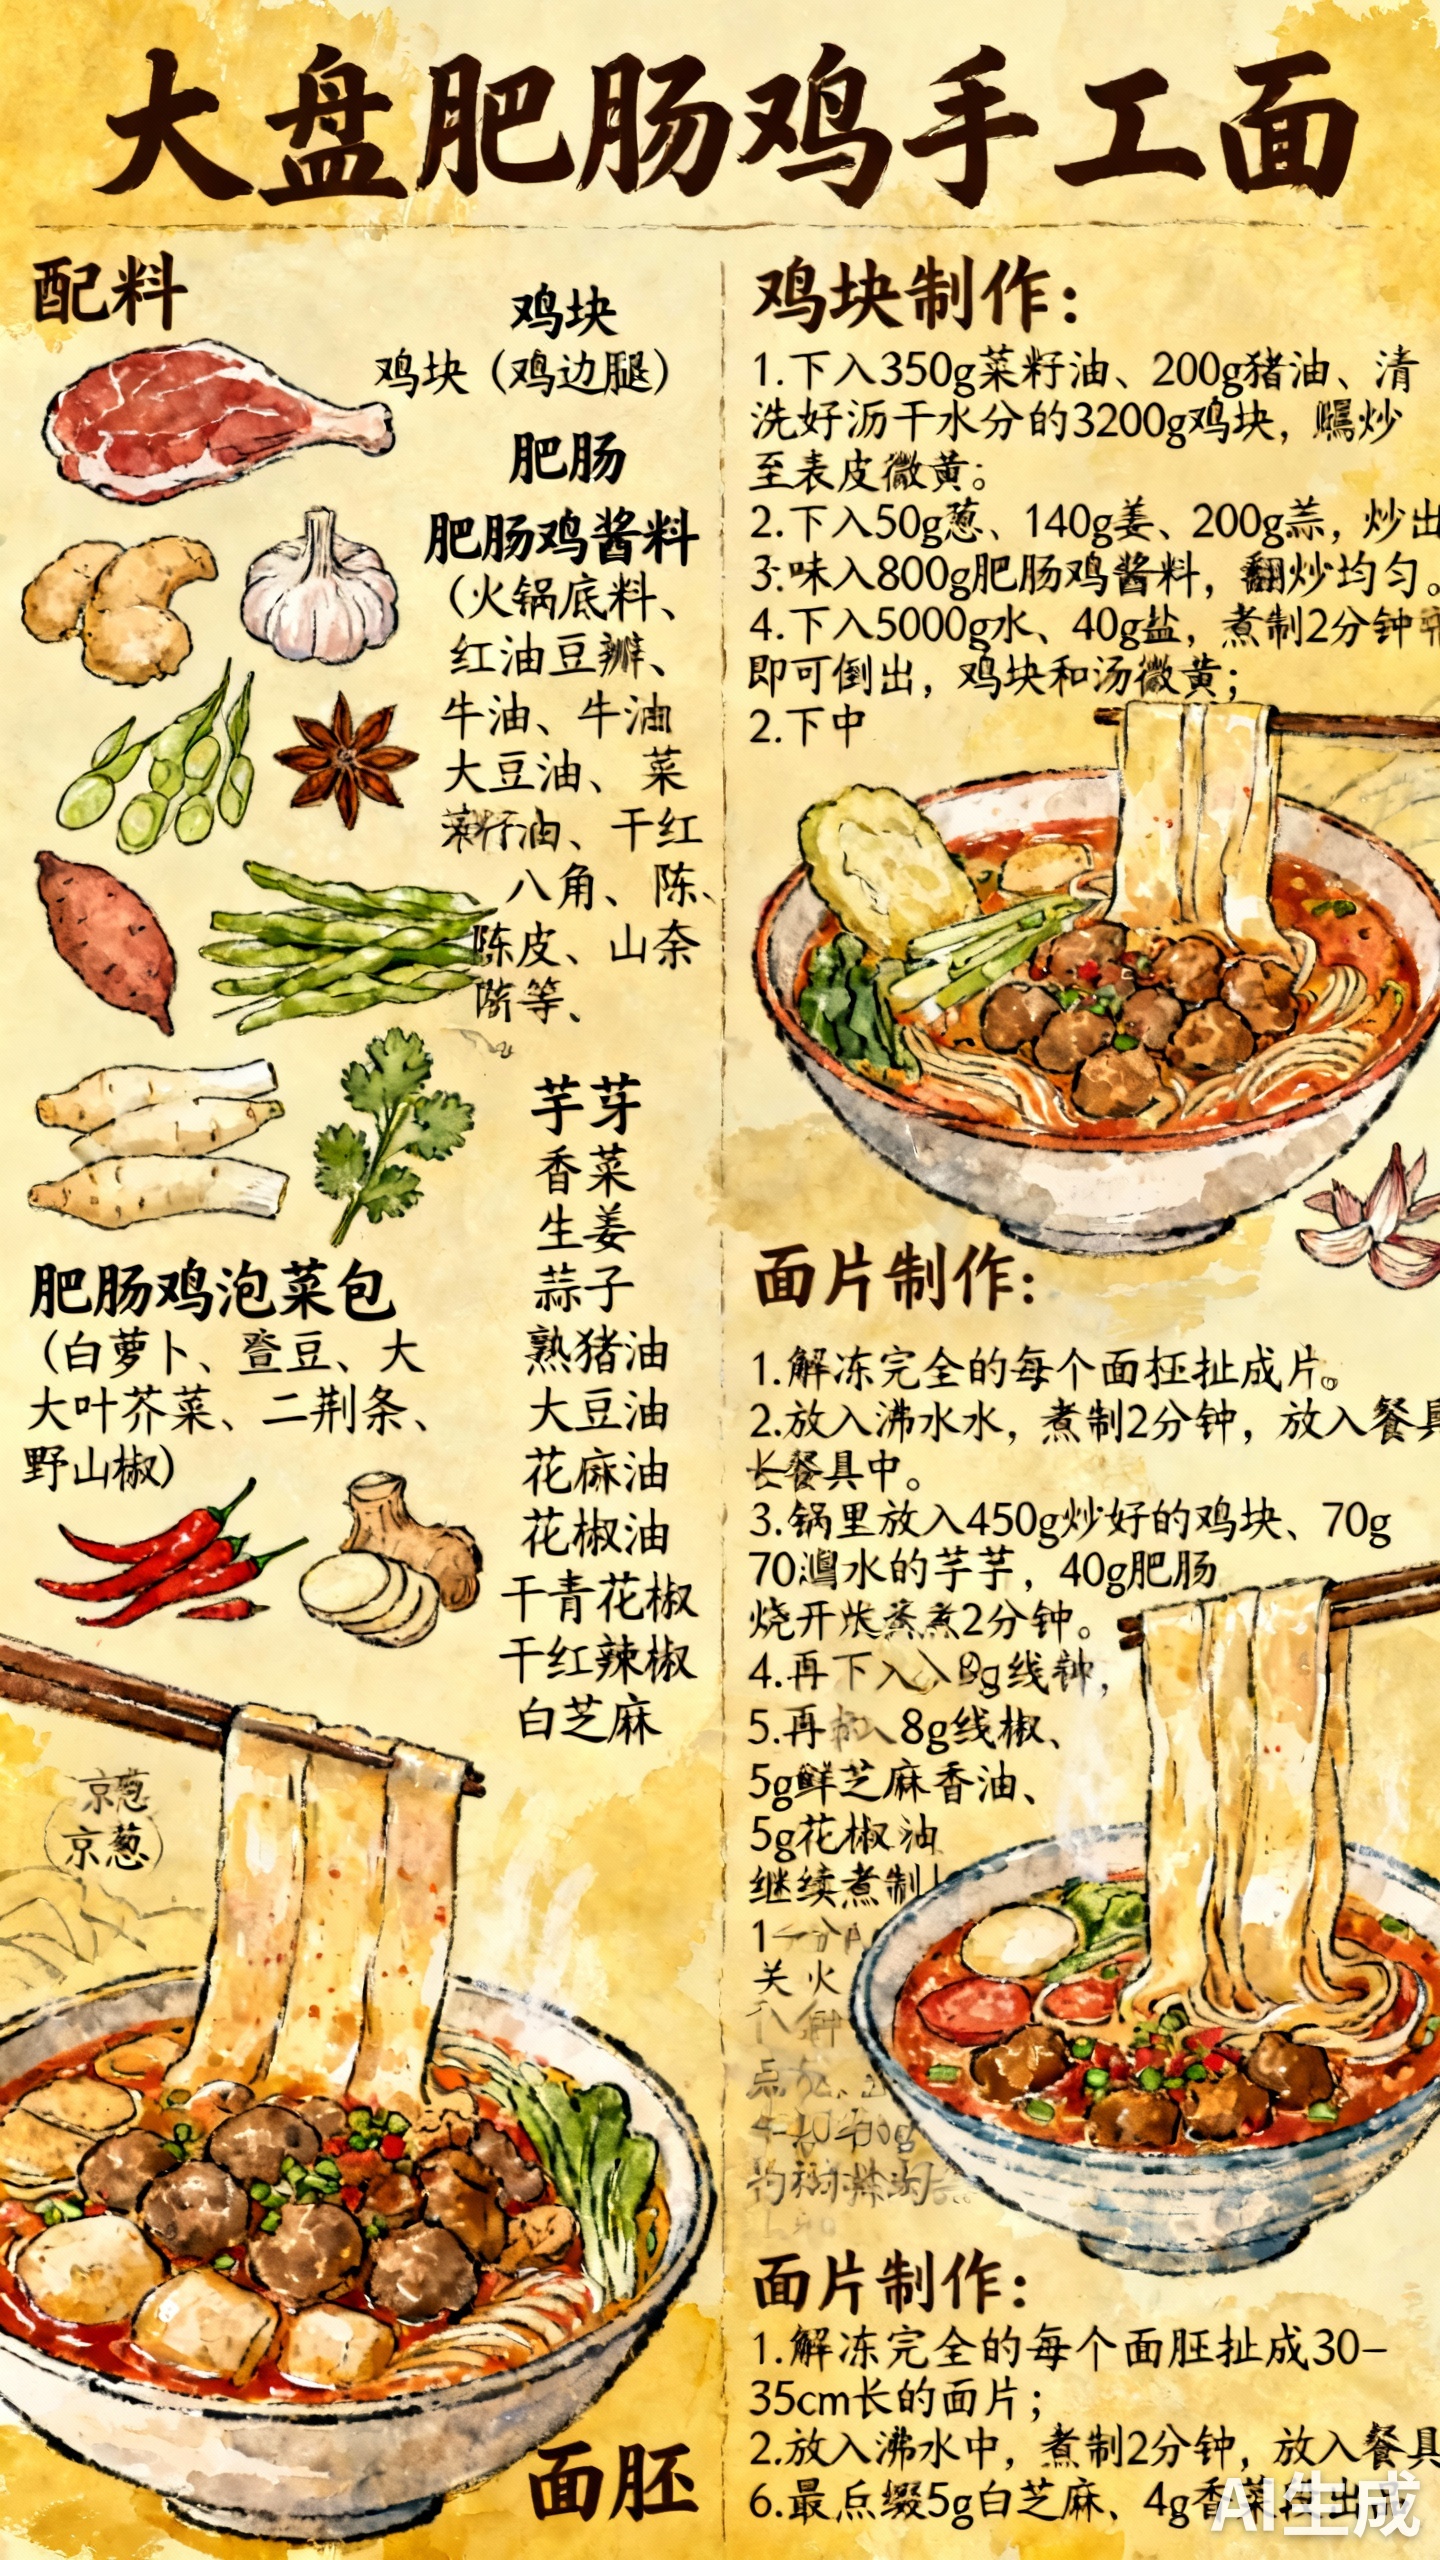 大盘肥肠鸡手工面
配料
鸡块
鸡块（鸡边腿）
肥肠
肥肠鸡酱料
（火锅底料、
红油豆瓣、
牛油、牛油
大豆油、菜
菜籽油、干红
八角、陈、
陈皮、山奈
等、
芋芽
香菜
生姜
蒜子
熟猪油
大豆油
花麻油
花椒油
干青花椒
干红辣椒
白芝麻
肥肠鸡泡菜包
（白萝卜、豆、大
大叶芥菜、二荆条、
野山椒）
京葱
京葱
面胚
鸡块制作：
1.下入350g菜籽油、200g猪油、清
洗好沥干水分的3200g鸡块，炒
至表皮微黄。
2.下入50g葱、140g姜、200g蒜，炒出
3.味入800g肥肠鸡酱料，翻炒均匀。
4.下入5000g水、40g盐，煮制2分钟
即可倒出，鸡块和汤微黄；
2.下中
面片制作：
1.解冻完全的每个面扯成片。
2.放入沸水水，煮制2分钟，放入餐具
长餐具中。
3.锅里放入450g炒好的鸡块、70g
70水的芋芋，40g肥肠
烧开煮2分钟。
4.再下入入8g线
5.再入8g线椒、
5g鲜芝麻香油、
5g花椒油
继续煮制
1
关火
面片制作：
1.解冻完全的每个面胚扯成30-
35cm长的面片；
2.放入沸水中，煮制2分钟，放入餐具
6.最点缀5g白芝麻、4g香菜出品
AI生成